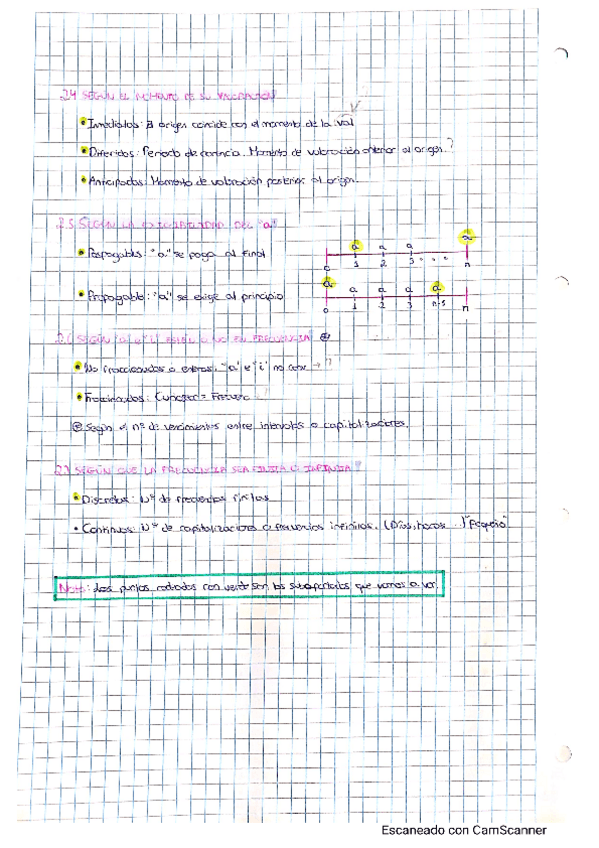 2.4 SEGÚN EL MOMENTO DE SU VALORACIÓN
• Inmediatos: El origen coincide con el momento de la val
• Diferidos: Periodo de carencia. Momento de valoración anterior al origen.?
• Anticipados: Momento de valoración posterior al origen.
2.5 SEGÚN LA EXIGIBILIDAD DEL "a"
• Pospagables: "a" se paga al final
a a a a
0 1 2 3 . . . n
• Prepagable: "a" se exige al principio
a a a a a
0 1 2 3 n-1 n
SEGÚN "a" e "i" O NO EN FRECUENCIA
• No fraccionados o enteros: "a" e "i" no → ?
• Fraccionados:
Según el nº de vencimientos entre intervalos o capitalizaciones.
2.7 SEGÚN QUE LA FRECUENCIA SEA FINITA O INFINITA?
• Discretas: Nº de frecuencias finitas
• Continuas: Nº de capitalizaciones o frecuencias infinitas. (Días, horas...) "Pequeño"
Nota: Los puntos rodeados con verde son los subapartados que vamos a ver
Escaneado con CamScanner